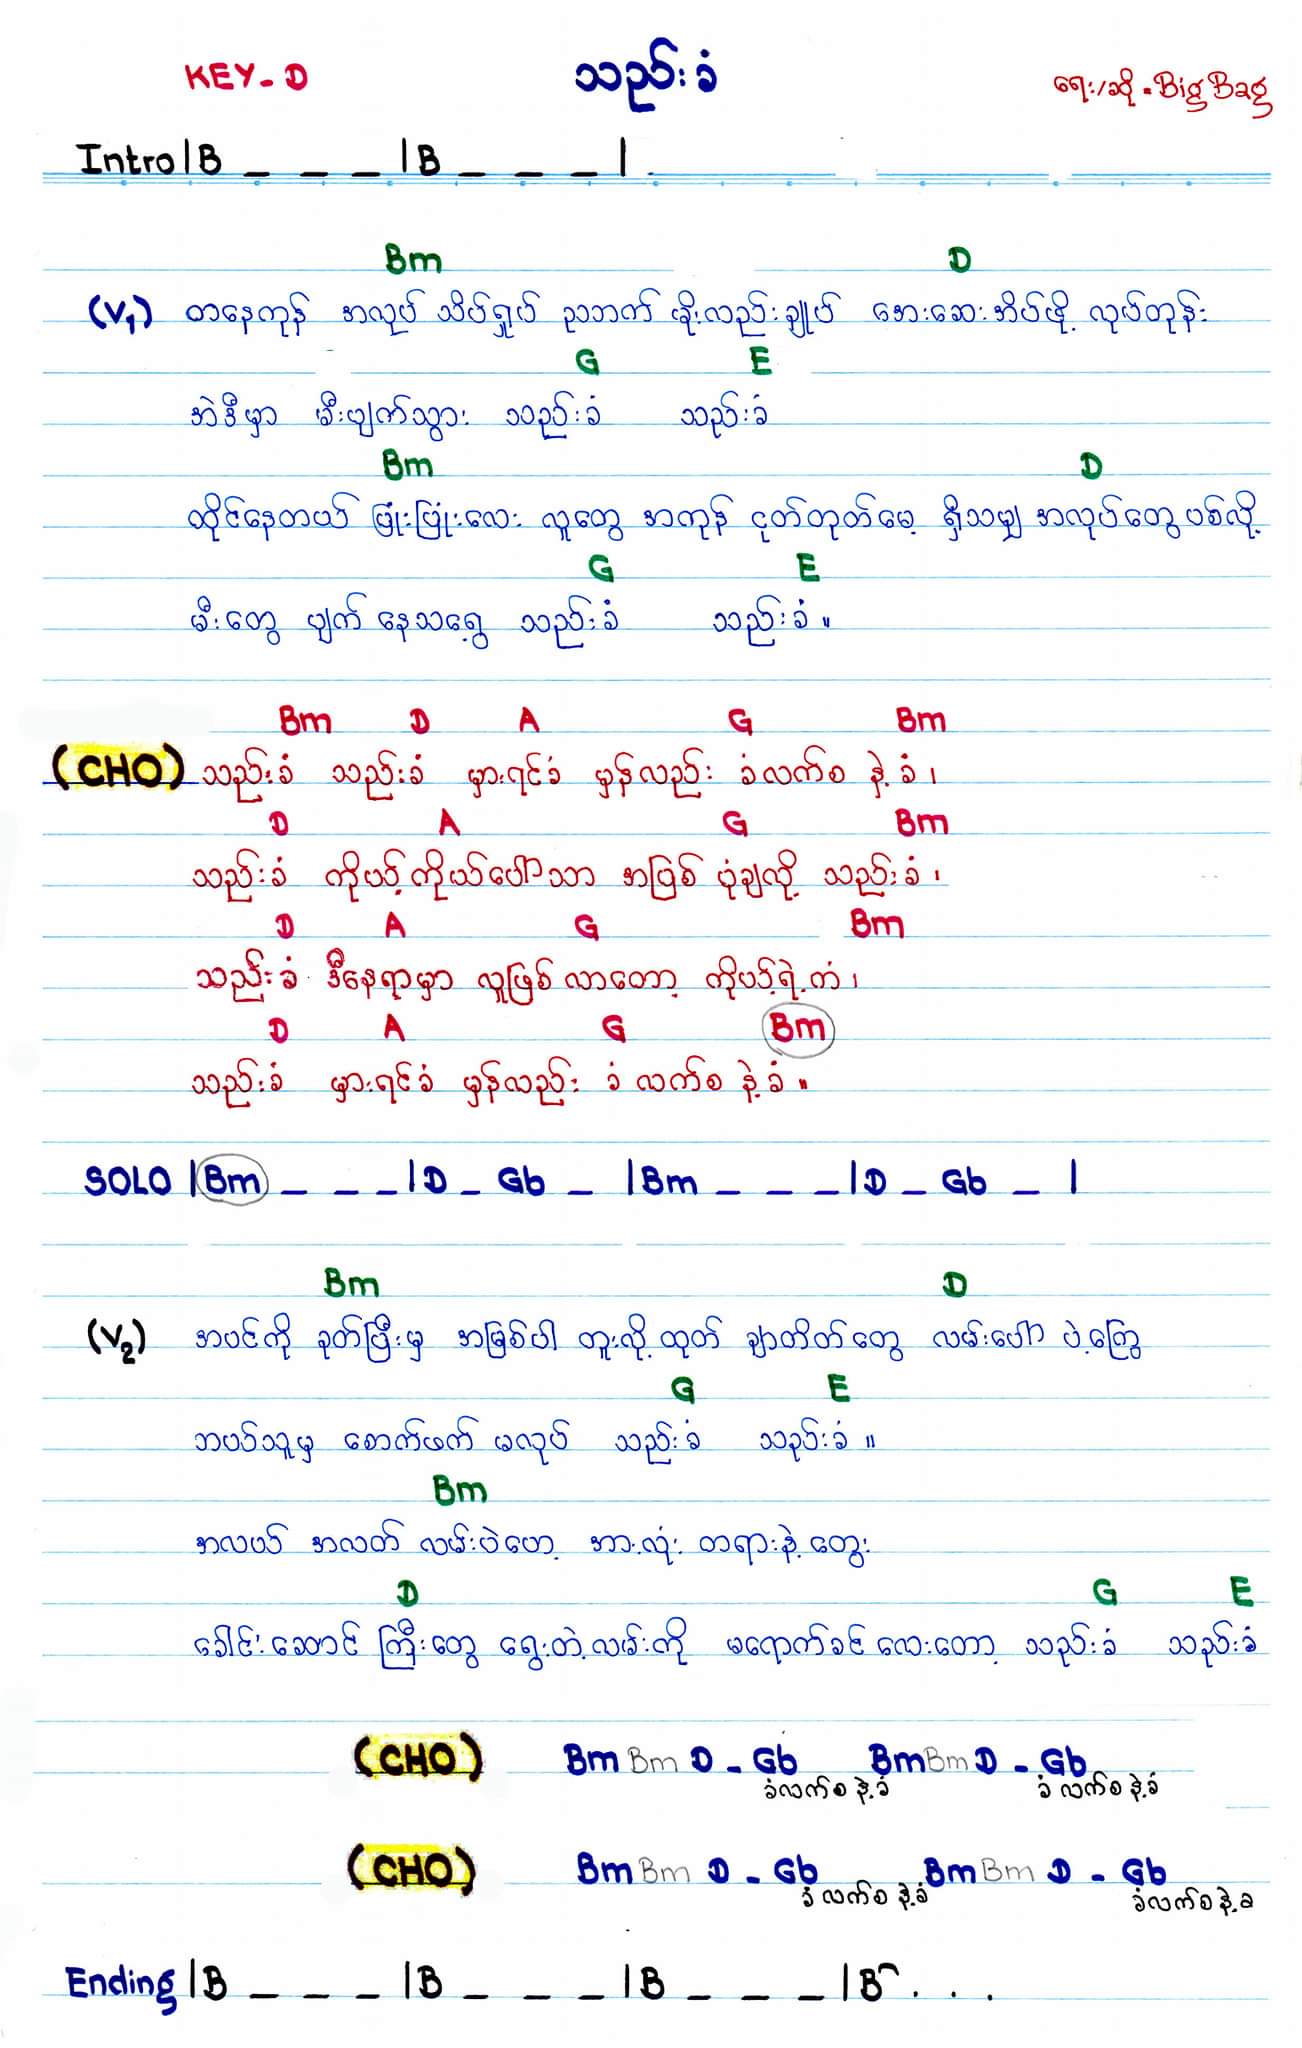 KEY - D သည်းခံ ရေး/ဆို - Big Bag
Intro |B _ _ _ |B _ _ _ |
Bm D
(V1) တနေကုန် အလုပ် သိပ်ရှုပ် ညဘက် မိုးလည်းချုပ် အေးဆေးအိပ်ဖို့ လုပ်တုန်း
G E
အဲဒီမှာ မီးပျက်သွား သည်းခံ သည်းခံ
Bm D
ထိုင်နေတယ် ပြုံးပြုံးလေး လူတွေ အကုန် ငုတ်တုတ်မေ့ ရှိသမျှ အလုပ်တွေပစ်လို့
G E
မီးတွေ ပျက်နေသရွေ့ သည်းခံ သည်းခံ။
Bm D A G Bm
(CHO) သည်းခံ သည်းခံ မှားရင်ခံ မှန်လည်း ခံလက်စ နဲ့ ခံ၊
D A G Bm
သည်းခံ ကိုယ့်ကိုယ်ပေါ်သာ အပြစ် ပုံချလို့ သည်းခံ၊
D A G Bm
သည်းခံ ဒီနေရာမှာ လူဖြစ်လာတော့ ကိုယ့်ရဲ့ကံ၊
D A G Bm
သည်းခံ မှားရင်ခံ မှန်လည်း ခံ လက်စ နဲ့ ခံ။
SOLO |Bm _ _ _ |D _ Gb _ |Bm _ _ _ |D _ Gb _ |
Bm D
(V2) အပင်ကို ခုတ်ပြီးမှ အမြစ်ပါ တူးလို့ထုတ် ချာတိတ်တွေ လမ်းပေါ် ပဲ့ကြွေ
G E
ဘယ်သူမှ စောက်ဖက် မလုပ် သည်းခံ သည်းခံ။
Bm
အလယ် အလတ် လမ်းပဲဟေ့ အားလုံး တရားနဲ့ တွေး
D G E
ခေါင်းဆောင် ကြီးတွေ ရွေးတဲ့လမ်းကို မရောက်ခင် လေးတော့ သည်းခံ သည်းခံ
(CHO) Bm Bm D - Gb Bm Bm D - Gb
ခံလက်စ နဲ့ခံ ခံ လက်စ နဲ့ခံ
(CHO) Bm Bm D - Gb Bm Bm D - Gb
ခံ လက်စ နဲ့ခံ ခံလက်စ နဲ့ခ
Ending |B _ _ _ |B _ _ _ |B _ _ _ |B . . .